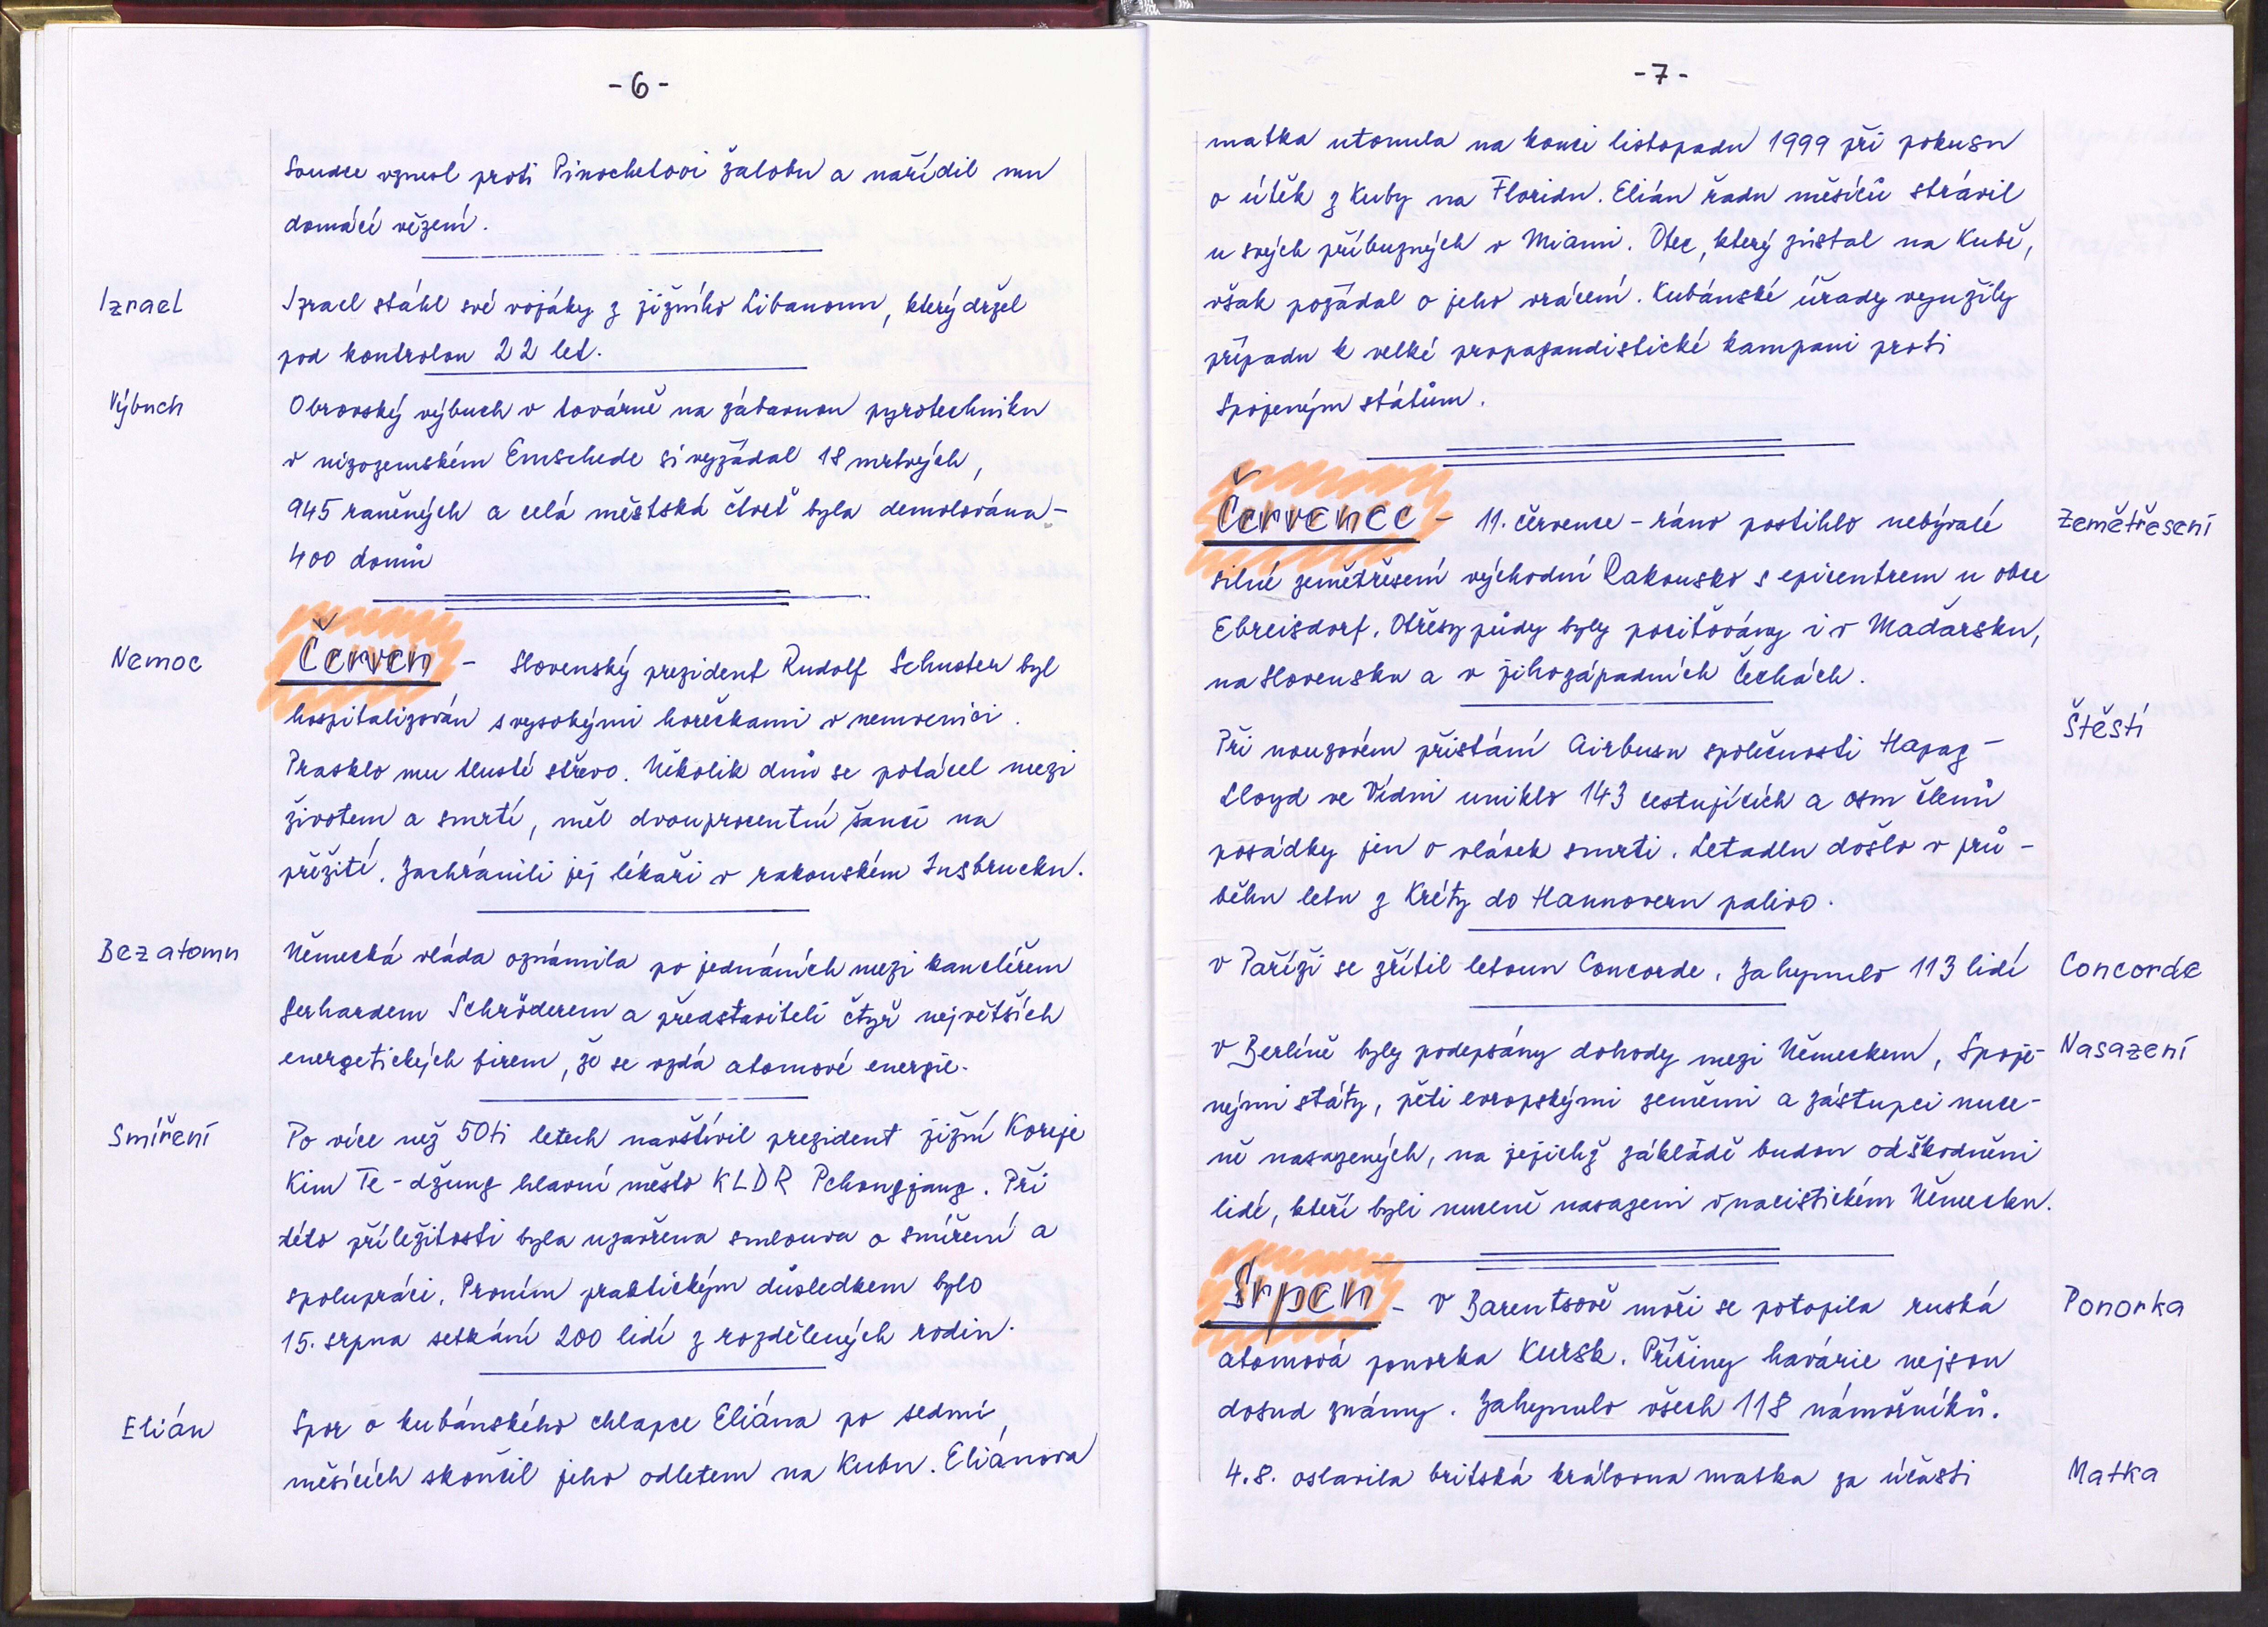 - 6 -
Soudce vznesl proti Pinochetovi žalobu a nařídil mu
domácí vězení.
Izrael
Izrael stáhl své vojáky z jižního Libanonu, který držel
pod kontrolou 22 let.
Výbuch
Obrovský výbuch v továrně na zábavnou pyrotechniku
v nizozemském Emschede si vyžádal 18 mrtvých,
945 raněných a celá městská čtvrť byla demolována -
400 domů
Nemoc
Červen - Slovenský prezident Rudolf Schuster byl
hospitalizován s vysokými horečkami v nemocnici.
Prasklo mu tlusté střevo. Několik dnů se potácel mezi
životem a smrtí, měl dvouprocentní šanci na
přežití. Zachránili jej lékaři v rakouském Insbrucku.
Bez atomu
Německá vláda oznámila po jednáních mezi kancléřem
Gerhardem Schröderem a představiteli čtyř největších
energetických firem, že se vzdá atomové energie.
Smíření
Po více než 50ti letech navštívil prezident jižní Koreje
Kim Te-džung hlavní město KLDR Pchongjang. Při
této příležitosti byla uzavřena smlouva o smíření a
spolupráci. Prvním praktickým důsledkem bylo
15. srpna setkání 200 lidí z rozdělených rodin.
Elián
Spor o kubánského chlapce Eliána po sedmi
měsících skončil jeho odletem na Kubu. Eliánova
- 7 -
matka utonula na konci listopadu 1999 při pokusu
o útěk z Kuby na Floridu. Elián řadu měsíců strávil
u svých příbuzných v Miami. Otec, který zůstal na Kubě,
však požádal o jeho vrácení. Kubánské úřady využily
případu k velké propagandistické kampani proti
Spojeným státům.
Červenec - 11. července - ráno postihlo nebývalé
Zemětřesení
silné zemětřesení východní Rakousko s epicentrem u obce
Ebreisdorf. Otřesy půdy byly pociťovány i v Maďarsku,
na Slovensku a v jihozápadních Čechách.
Štěstí
Při nouzovém přistání Airbusu společnosti Hapag -
Lloyd ve Vídni uniklo 143 cestujících a osm členů
posádky jen o vlásek smrti. Letadlu došlo v prů -
běhu letu z Kréty do Hannoveru palivo.
V Paříži se zřítil letoun Concorde. Zahynulo 113 lidí
Concorde
V Berlíně byly podepsány dohody mezi Německem, Spoje-
Nasazení
nými státy, pěti evropskými zeměmi a zástupci nuce-
ně nasazených, na jejichž základě budou odškodněni
lidé, kteří byli nuceně nasazeni v nacistickém Německu.
Srpen - V Barentsově moři se potopila ruská
Ponorka
atomová ponorka Kursk. Příčiny havárie nejsou
dosud známy. Zahynulo všech 118 námořníků.
4.8. oslavila britská královna matka za účasti
Matka